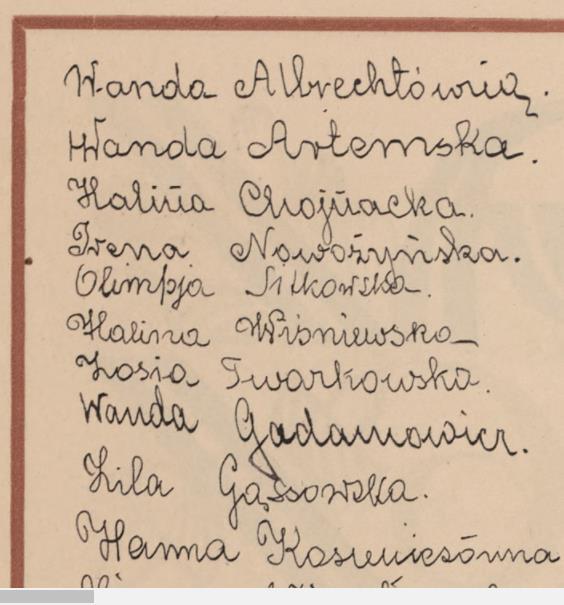 Wanda Albrechtówną.
Wanda Artemska.
Halina Chojnacka.
Irena Nowożyńska.
Olimpja Sitkowska.
Halina Wiśniewska
Zosia Twarkowska.
Wanda Gadamowicz.
Lila Gąssowska.
Hanna